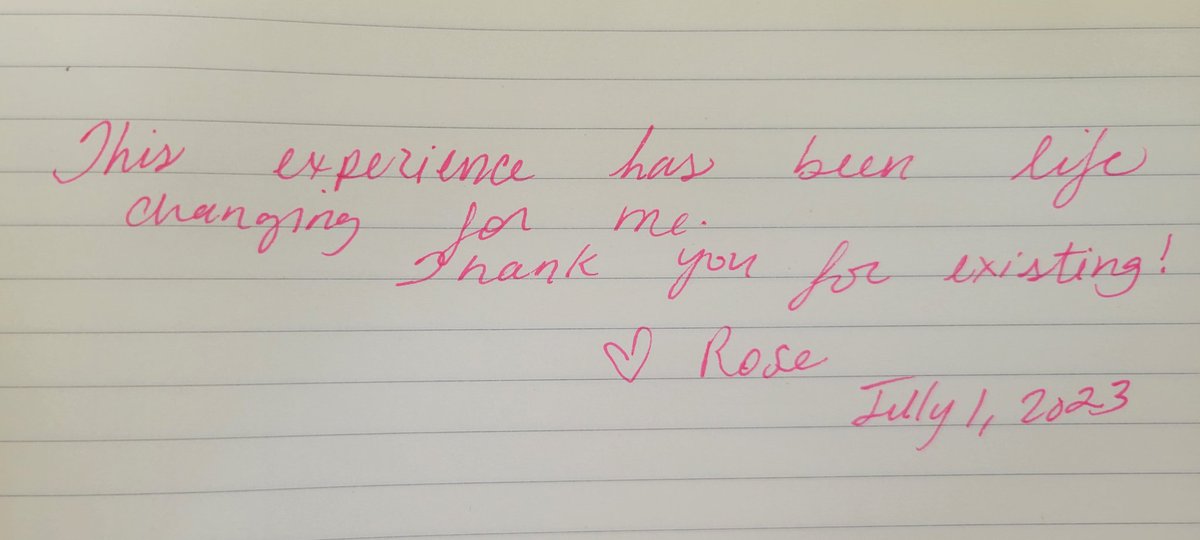 This experience has been life
changing for me.
Thank you for existing!
♡ Rose
July 1, 2023